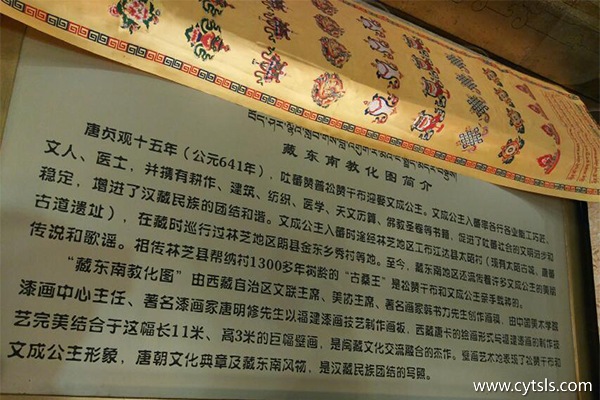 藏东南教化图简介
唐贞观十五年（公元641年），吐蕃赞普松赞干布迎娶文成公主。文成公主入蕃率各行各业能工巧匠、
文人、医士，并携有耕作、建筑、纺织、医学、天文历算、佛教圣像等书籍，促进了吐蕃社会的文明进步和
稳定，增进了汉藏民族的团结和谐。文成公主入蕃时途经林芝地区工布江达县太昭村（现有太昭古城，唐蕃
古道遗址），在藏时巡行过林芝地区朗县金东乡秀村等地。至今，藏东南地区还流传着许多文成公主的美丽
传说和歌谣。祖传林芝县帮纳村1300多年树龄的“古桑王”是松赞干布和文成公主亲手栽种的。
“藏东南教化图”由西藏自治区文联主席、美协主席、著名画家韩书力先生创作画稿，由中国美术学院
漆画中心主任、著名漆画家唐明修先生以福建漆画技艺制作画板，西藏唐卡的绘画形式与福建漆画的制作技
艺完美结合于这幅长11米、高3米的巨幅壁画，是闽藏文化交流融合的杰作。壁画艺术地表现了松赞干布和
文成公主形象，唐朝文化典章及藏东南风物，是汉藏民族团结的写照。
www.cytsls.com